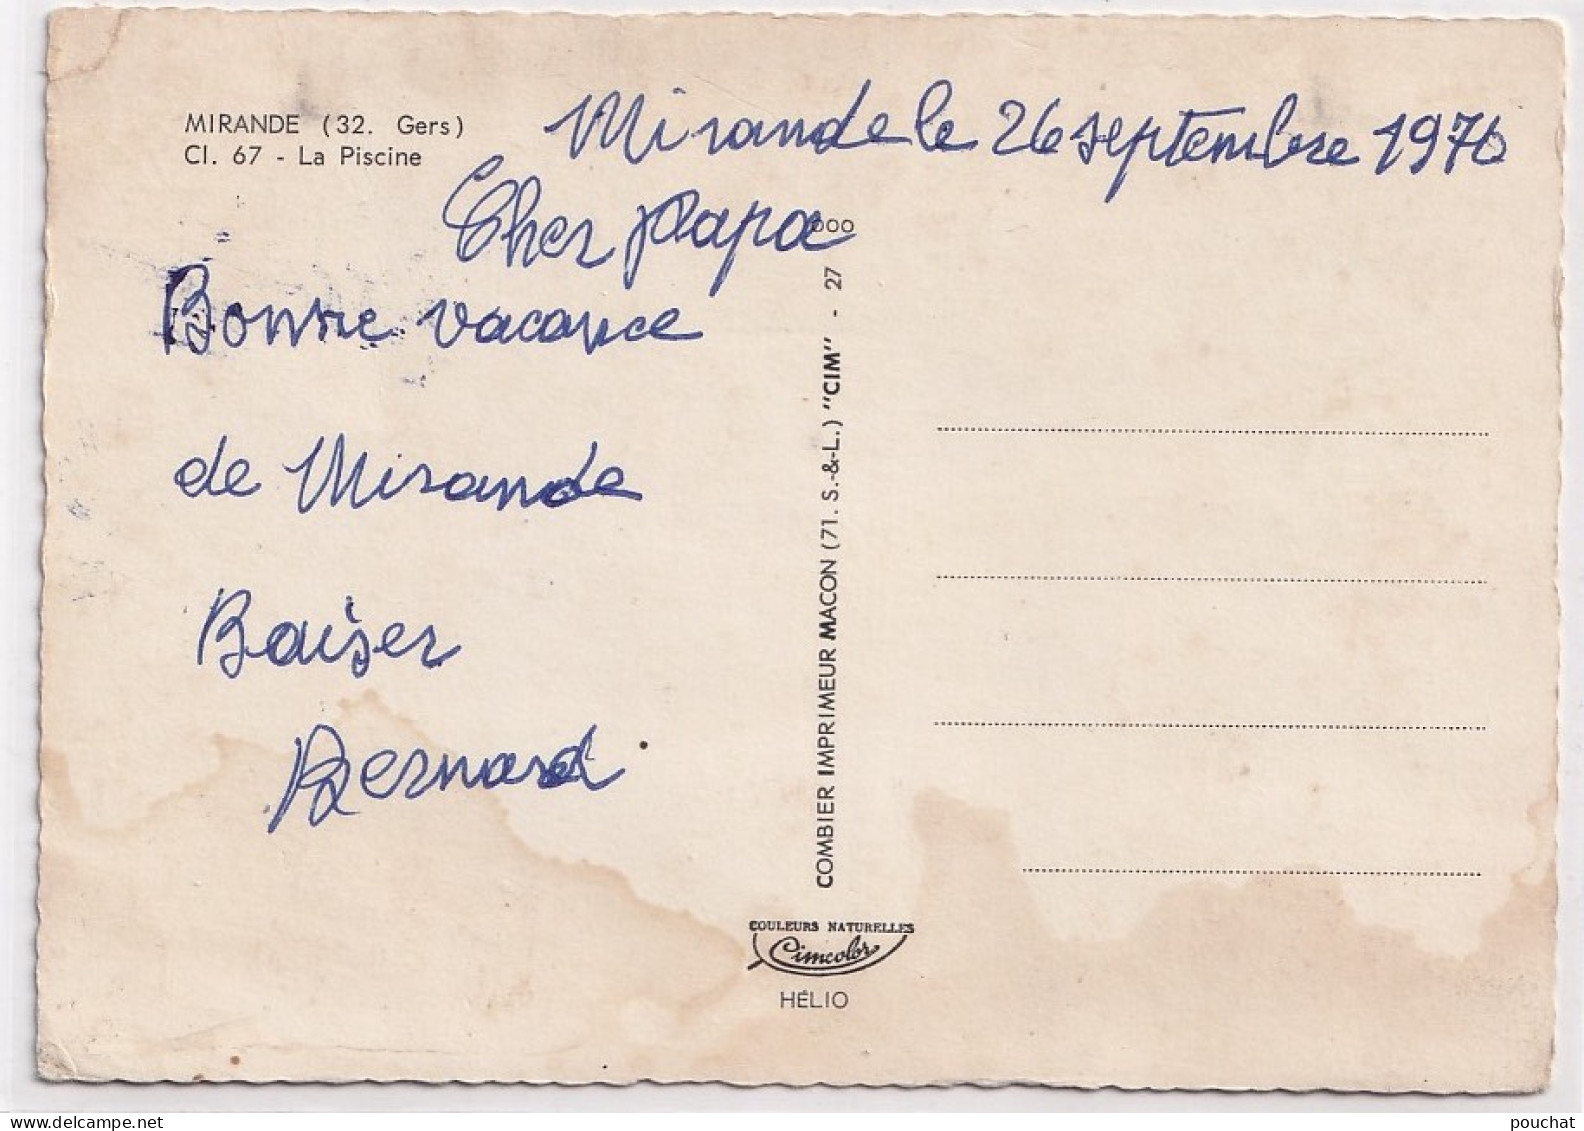 MIRANDE (32. Gers)
Cl. 67 - La Piscine
Mirande le 26 septembre 1970
Cher papa
Bonne vacance
de Mirande
Baiser
Bernard
COMBIER IMPRIMEUR MACON (71. S.-&-L.) "CIM" - 27 000
COULEURS NATURELLES
Cimcolor
HÉLIO
www.delcampe.net
pouchat